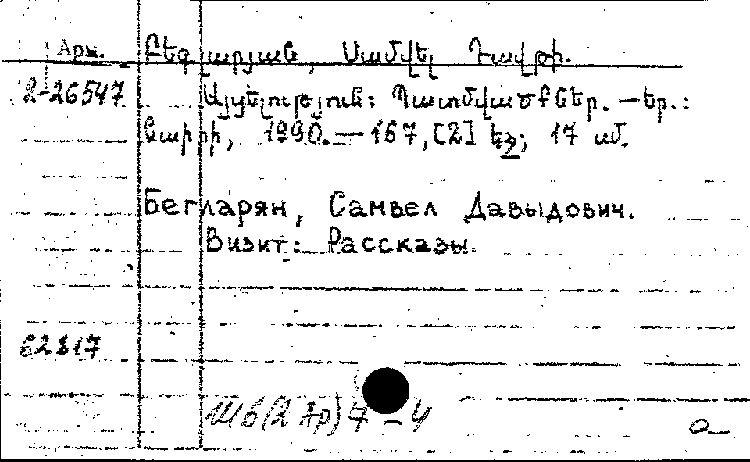 Арм. Բեգլարյան, Սամվել Դավթի.
2-26547 Այցելություն: Պատմվածքներ. — Եր.:
Նաիրի, 1990. — 167, [2] էջ; 17 սմ.
Бегларян, Самвел Давыдович.
Визит: Рассказы.
62817
Ш6(2 Ар)7 - 4